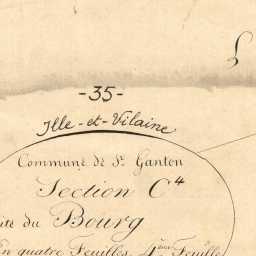 -35-
Ille-et-Vilaine
Commune de St. Ganton
Section C4
dite du Bourg
En quatre Feuilles, 4ème Feuille